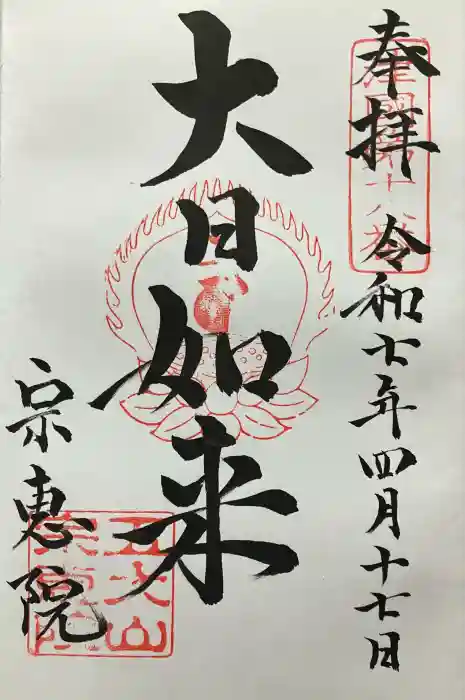 奉拝
令和七年四月十七日
大日如来
宗恵院